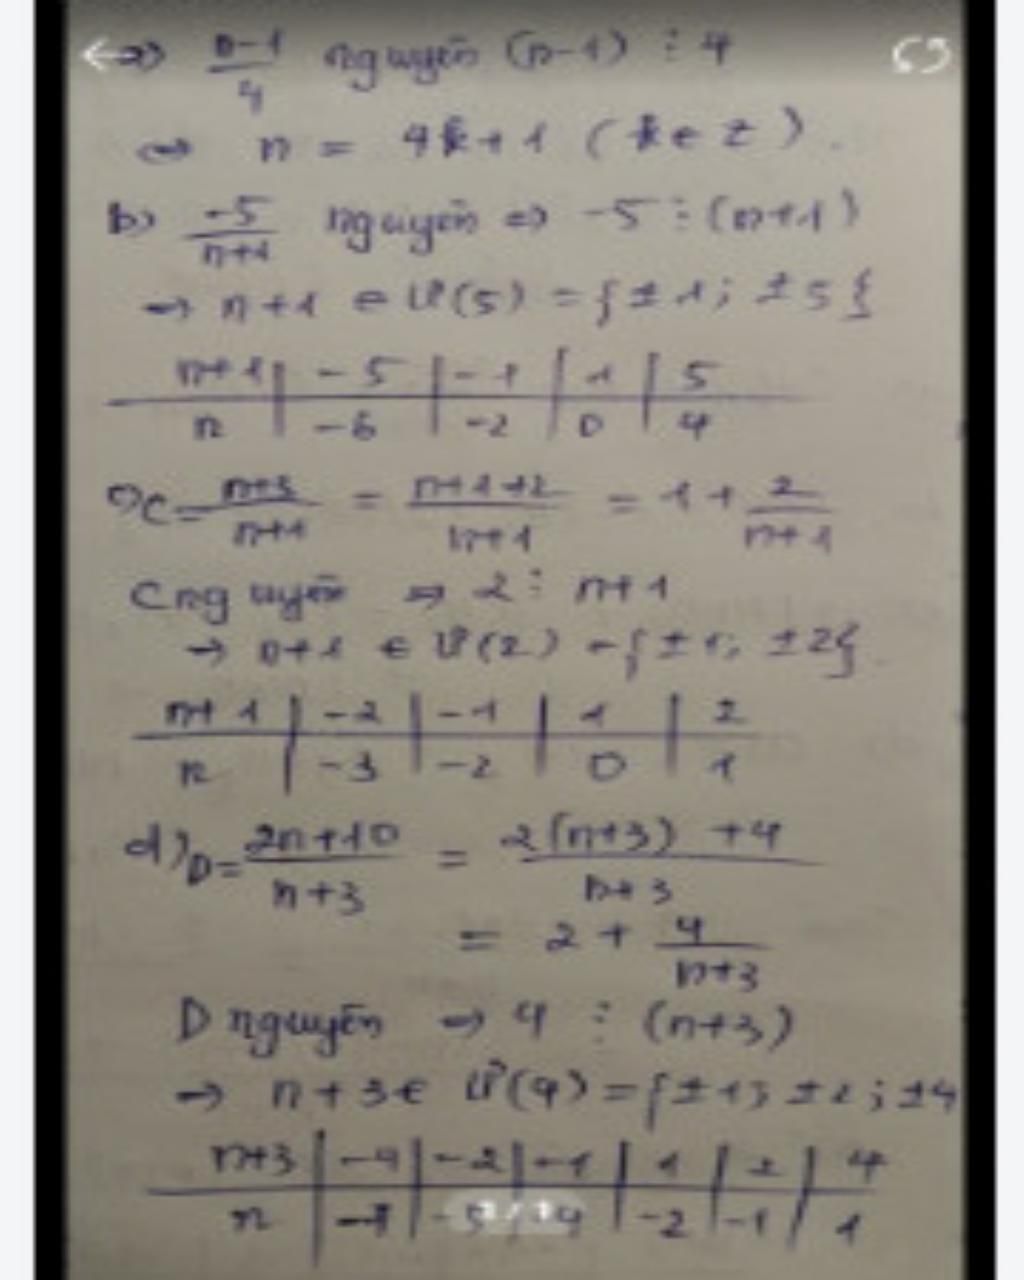 a) n-1/4 nguyên (n-1) ⋮ 4
⇔ n = 4k+1 (k∈Z).
b) -5/n+1 nguyên ⇒ -5 ⋮ (n+1)
→ n+1 ∈ Ư(5) = {±1; ±5}
n+1 | -5 | -1 | 1 | 5
n | -6 | -2 | 0 | 4
C = n+3/n+1 = n+1+2/n+1 = 1+ 2/n+1
C nguyên ⇒ 2 ⋮ n+1
→ n+1 ∈ Ư(2) = {±1; ±2}.
n+1 | -2 | -1 | 1 | 2
n | -3 | -2 | 0 | 1
d) D = 2n+10/n+3 = 2(n+3) +4/n+3
= 2 + 4/n+3
D nguyên ⇒ 4 ⋮ (n+3)
→ n+3 ∈ Ư(4) = {±1; ±2; ±4
n+3 | -4 | -2 | -1 | 1 | 2 | 4
n | -7 | -5 | -4 | -2 | -1 | 1